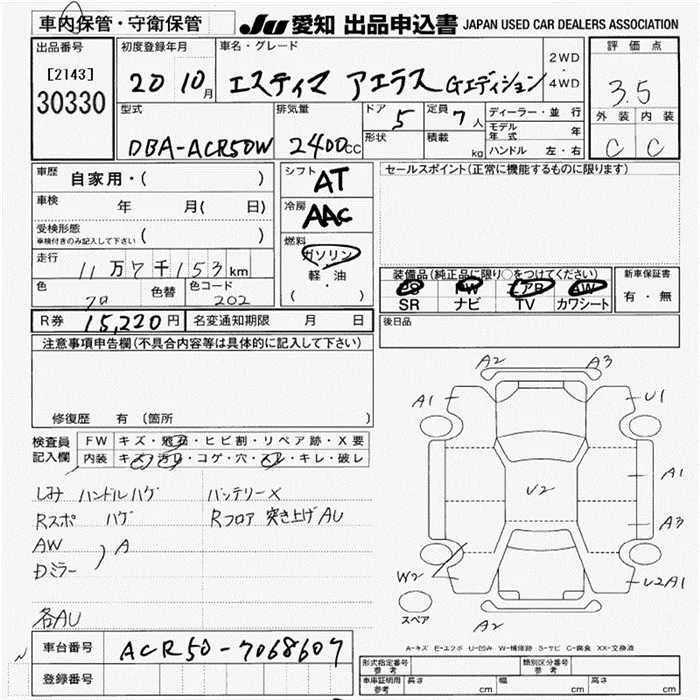 車内保管・守衛保管
JU 愛知 出品申込書 JAPAN USED CAR DEALERS ASSOCIATION
出品番号
[2143]
30330
初度登録年月
20 10月
車名・グレード
エスティマ アエラス Gエディション
2WD
・
4WD
評価点
3.5
外装 内装
C C
型式
DBA-ACR50W
排気量
2400cc
ドア
5
形状
定員
7人
積載
kg
ディーラー・並行
モデル年式 年
ハンドル 左・右
車歴
自家用・( )
車検
年 月( 日)
受検形態
車検付きのみ記入して下さい ( )
走行
11万7千153km
色
クロ
色替
色コード
202
シフト
AT
冷房
AAC
燃料
ガソリン
軽・油
( )
セールスポイント(正常に機能するものに限ります)
装備品(純正品に限り○をつけてください)
PS PW エアB AW
SR ナビ TV カワシート
新車保証書
有・無
R券 15,220円 名変通知期限 月 日
後日品
注意事項申告欄(不具合内容等は具体的に記入して下さい)
修復歴 有 (箇所 )
検査員記入欄
FW キズ・飛石・ヒビ割・リペア跡・X要
内装 キズ・汚レ・コゲ・穴・スレ・キレ・破レ
しみ ハンドルハゲ バッテリーX
Rスポ ハゲ Rフロア 突き上げAU
AW
Dミラー ) A
各AU
A2 A3
A1 U1
A1
U2
A3
W2 U2A1
スペア
A2
A-キズ E-エクボ U-凹み W-補修跡 S-サビ C-腐食 XX-交換済
車台番号 ACR50-7068607
登録番号
形式指定番号
参考
類別区分番号
参考
車庫証明用
参考
長さ cm 幅 cm 高さ cm